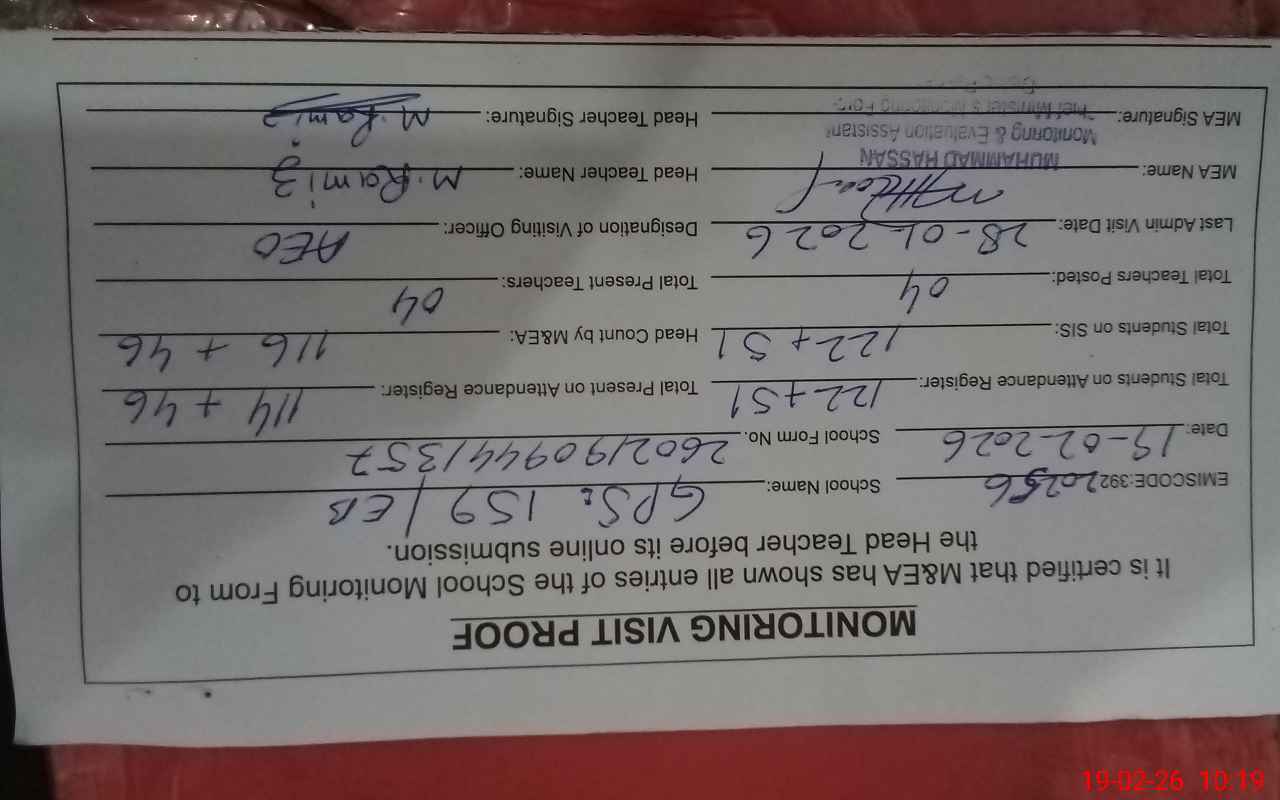 MONITORING VISIT PROOF
It is certified that M&EA has shown all entries of the School Monitoring From to
the Head Teacher before its online submission.
EMISCODE:392 20256 School Name: GPS: 159/EB
Date: 19-02-2026 School Form No. 2602190944 1357
Total Students on Attendance Register: 122+51 Total Present on Attendance Register: 114 + 46
Total Students on SIS: 122+51 Head Count by M&EA: 116 + 46
Total Teachers Posted: 04 Total Present Teachers: 04
Last Admin Visit Date: 28-01-2026 Designation of Visiting Officer: AEO
MEA Name: MUHAMMAD HASSAN Head Teacher Name: M. Ramiz
Monitoring & Evaluation Assistant
MEA Signature: Head Teacher Signature: M. Ramiz
Chief Minister's Monitoring Force
19-02-26 10:19